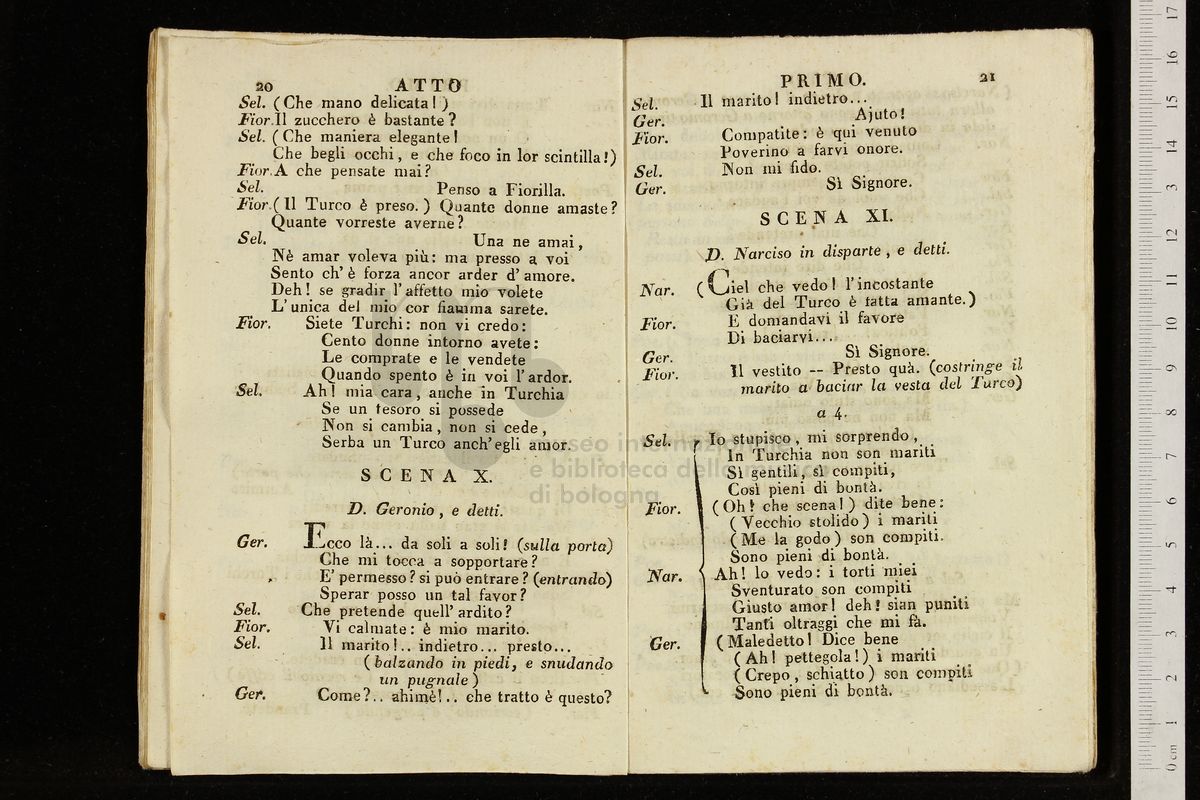 20 ATTO
Sel. (Che mano delicata!)
Fior. Il zucchero è bastante?
Sel. (Che maniera elegante!
Che begli occhi, e che foco in lor scintilla!)
Fior. A che pensate mai?
Sel. Penso a Fiorilla.
Fior. (Il Turco è preso.) Quante donne amaste?
Quante vorreste averne?
Sel. Una ne amai,
Nè amar voleva più: ma presso a voi
Sento ch'è forza ancor arder d'amore.
Deh! se gradir l'affetto mio volete
L'unica del mio cor fiamma sarete.
Fior. Siete Turchi: non vi credo:
Cento donne intorno avete:
Le comprate e le vendete
Quando spento è in voi l'ardor.
Sel. Ah! mia cara, anche in Turchia
Se un tesoro si possede
Non si cambia, non si cede,
Serba un Turco anch'egli amor.
SCENA X.
D. Geronio, e detti.
Ger. Ecco là... da soli a soli! (sulla porta)
Che mi tocca a sopportare?
E' permesso? si può entrare? (entrando)
Sperar posso un tal favor?
Sel. Che pretende quell'ardito?
Fior. Vi calmate: è mio marito.
Sel. Il marito!.. indietro... presto...
(balzando in piedi, e snudando
un pugnale)
Ger. Come?.. ahimè!.. che tratto è questo?
PRIMO. 21
Sel. Il marito! indietro...
Ger. Ajuto!
Fior. Compatite: è qui venuto
Poverino a farvi onore.
Sel. Non mi fido.
Ger. Sì Signore.
SCENA XI.
D. Narciso in disparte, e detti.
Nar. (Ciel che vedo! l'incostante
Già del Turco è fatta amante.)
Fior. E domandavi il favore
Di baciarvi...
Ger. Sì Signore.
Fior. Il vestito -- Presto quà. (costringe il
marito a baciar la vesta del Turco)
a 4.
Sel. Io stupisco, mi sorprendo,
In Turchia non son mariti
Sì gentili, sì compiti,
Così pieni di bontà.
Fior. (Oh! che scena!) dite bene:
(Vecchio stolido) i mariti
(Me la godo) son compiti.
Sono pieni di bontà.
Nar. Ah! lo vedo: i torti miei
Sventurato son compiti
Giusto amor! deh! sian puniti
Tanti oltraggi che mi fà.
Ger. (Maledetto! Dice bene
(Ah! pettegola!) i mariti
(Crepo, schiatto) son compiti
Sono pieni di bontà.
museo internazionale
e biblioteca della musica
di bologna
0 cm 1 2 3 4 5 6 7 8 9 10 11 12 13 14 15 16 17